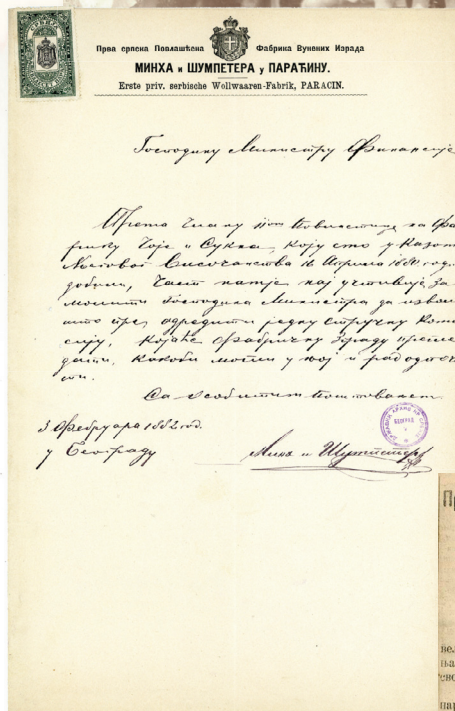 Прва српска Повлашћена Фабрика Вунених Израда
МИНХА и ШУМПЕТЕРА у ПАРАЋИНУ.
Erste priv. serbische Wollwaaren-Fabrik, PARACIN.
Господину Министру Финансије
Према члану Повластице за Фа-
брику Чоје и Сукна, коју смо у
Височанства 16 Априла 1880 год.
добили, Част нам је нај учтивије за
молити Господина Министра да изволи
што пре, одредити једну стручну Коми
сију, којаће фабричну зграду прегле
дати, какоби могли у њој и радо
ти.
Са особитим поштовањем
3 Фебруара 1882 год.
у Београду
Минх и Шумпетер
БЕОГРАД